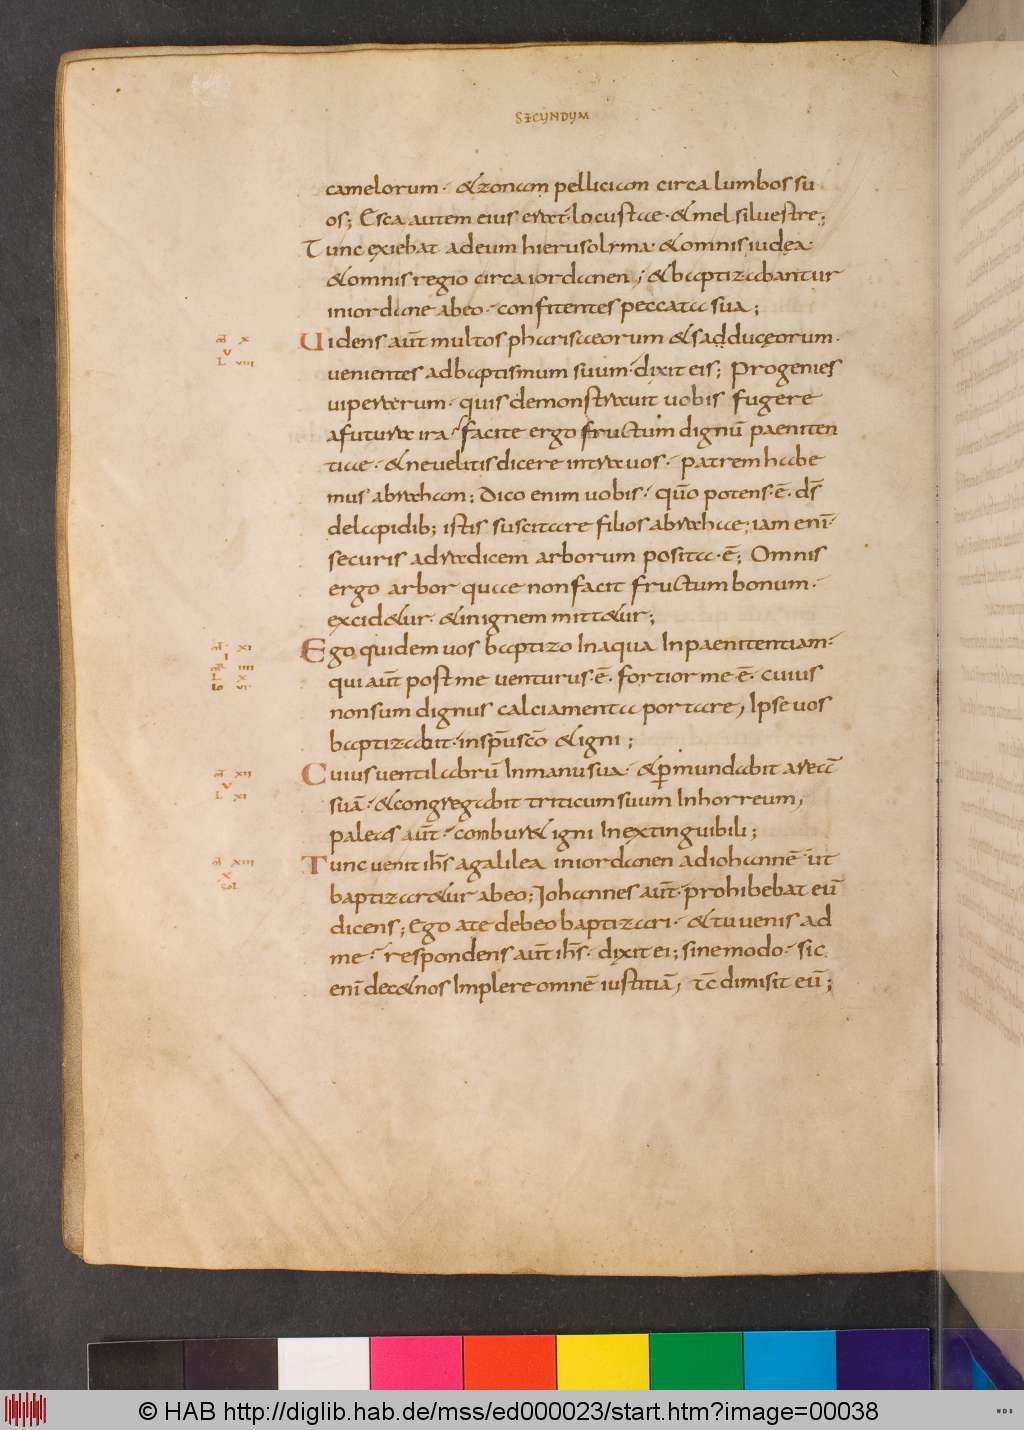 SECUNDUM
camelorum· & zonam pelliciam circa lumbos su
os; Esca autem eius erat· locustae· & mel siluestre;
Tunc exiebat ad eum hierusolyma· & omnis iudea·
& omnis regio circa iordanen; & baptizabantur
in iordane ab eo· confitentes peccata sua;
Uidens aut̄ multos pharisaeorum & sadducęorum·
uenientes ad baptismum suum· dixit eis; Progenies
uiperarum· quis demonstrauit uobis fugere
a futura ira· facite ergo fructum dignū paeniten
tiae· & ne uelitis dicere intra uos· patrem habe
mus abraham; Dico enim uobis· qūo potens·ē· d̄s
de lapidib; istis suscitare filios abrahae; iam enī·
securis ad radicem arborum posita·ē; Omnis
ergo arbor quae non facit fructum bonum·
excid&ur· & in ignem mitt&ur;
Ego quidem uos baptizo In aqua In paenitentiam·
qui aut̄ post me uenturus·ē· fortior me·ē· cuius
non sum dignus calciamenta portare, Ipse uos
baptizabit· in sp̄u sc̄o & igni;
Cuius uentilabrū In manu sua· & p̱mundabit areā
suā· & congregabit triticum suum In horreum,
paleas aut̄· combur& igni Inextinguibili;
Tunc uenit ih̄s a galilea in iordanen ad iohannē· ut
baptizar&ur ab eo; Iohannes aut̄· prohibebat eū
dicens; Ego a te debeo baptizari· & tu uenis ad
me· respondens aut̄ ih̄s· dixit ei; sine modo· sic
enī dec& nos Implere omnē iustitiā, tc̄ dimisit eū;
X
V
L VIII
XI
I
IIII
L X
VI
XII
V
L XI
XIII
X
sol
© HAB http://diglib.hab.de/mss/ed000023/start.htm?image=00038
WDB